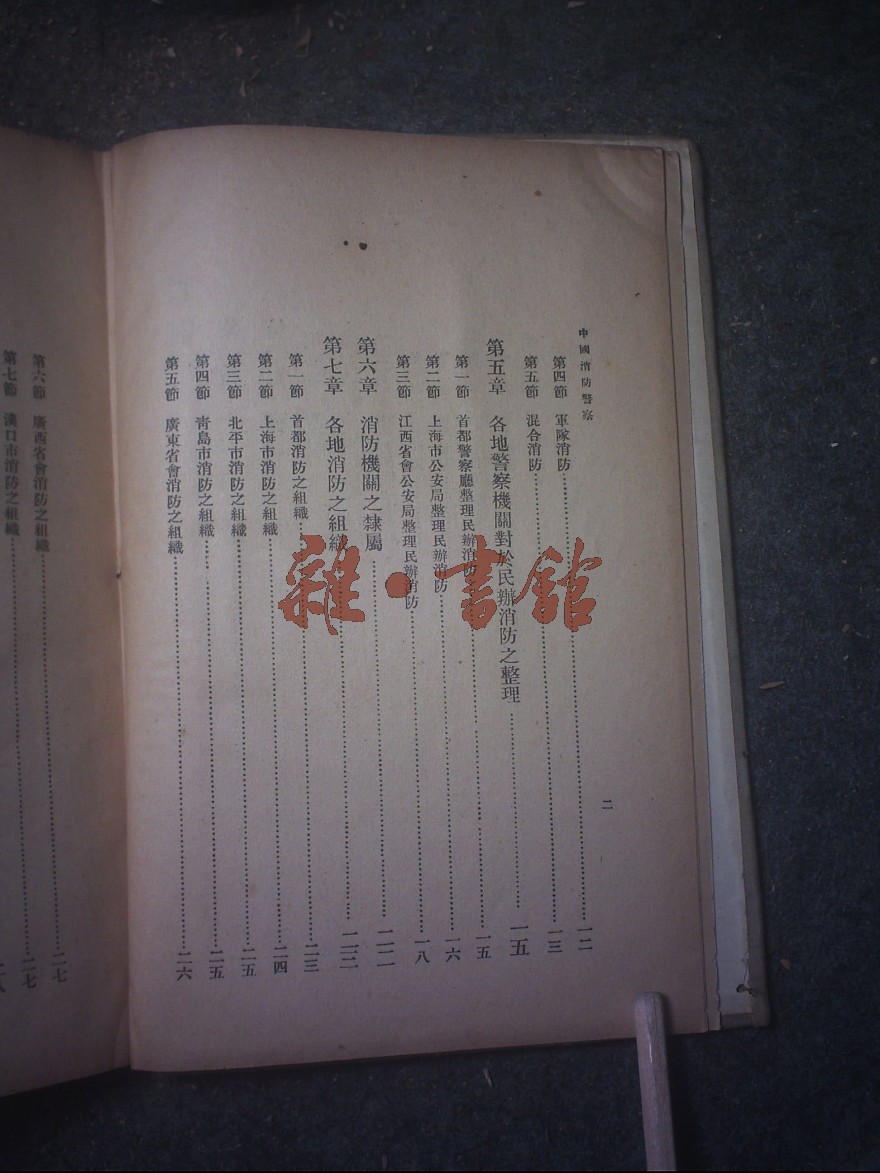 中國消防警察
二
第四節 軍隊消防……一二
第五節 混合消防……一三
第五章 各地警察機關對於民辦消防之整理……一五
第一節 首都警察廳整理民辦消防……一五
第二節 上海市公安局整理民辦消防……一六
第三節 江西省會公安局整理民辦消防……一八
第六章 消防機關之隸屬……二二
第七章 各地消防之組織……二三
第一節 首都消防之組織……二三
第二節 上海市消防之組織……二四
第三節 北平市消防之組織……二五
第四節 青島市消防之組織……二五
第五節 廣東省會消防之組織……二六
第六節 廣西省會消防之組織……二七
第七節 漢口市消防之組織……二七
雜·書館